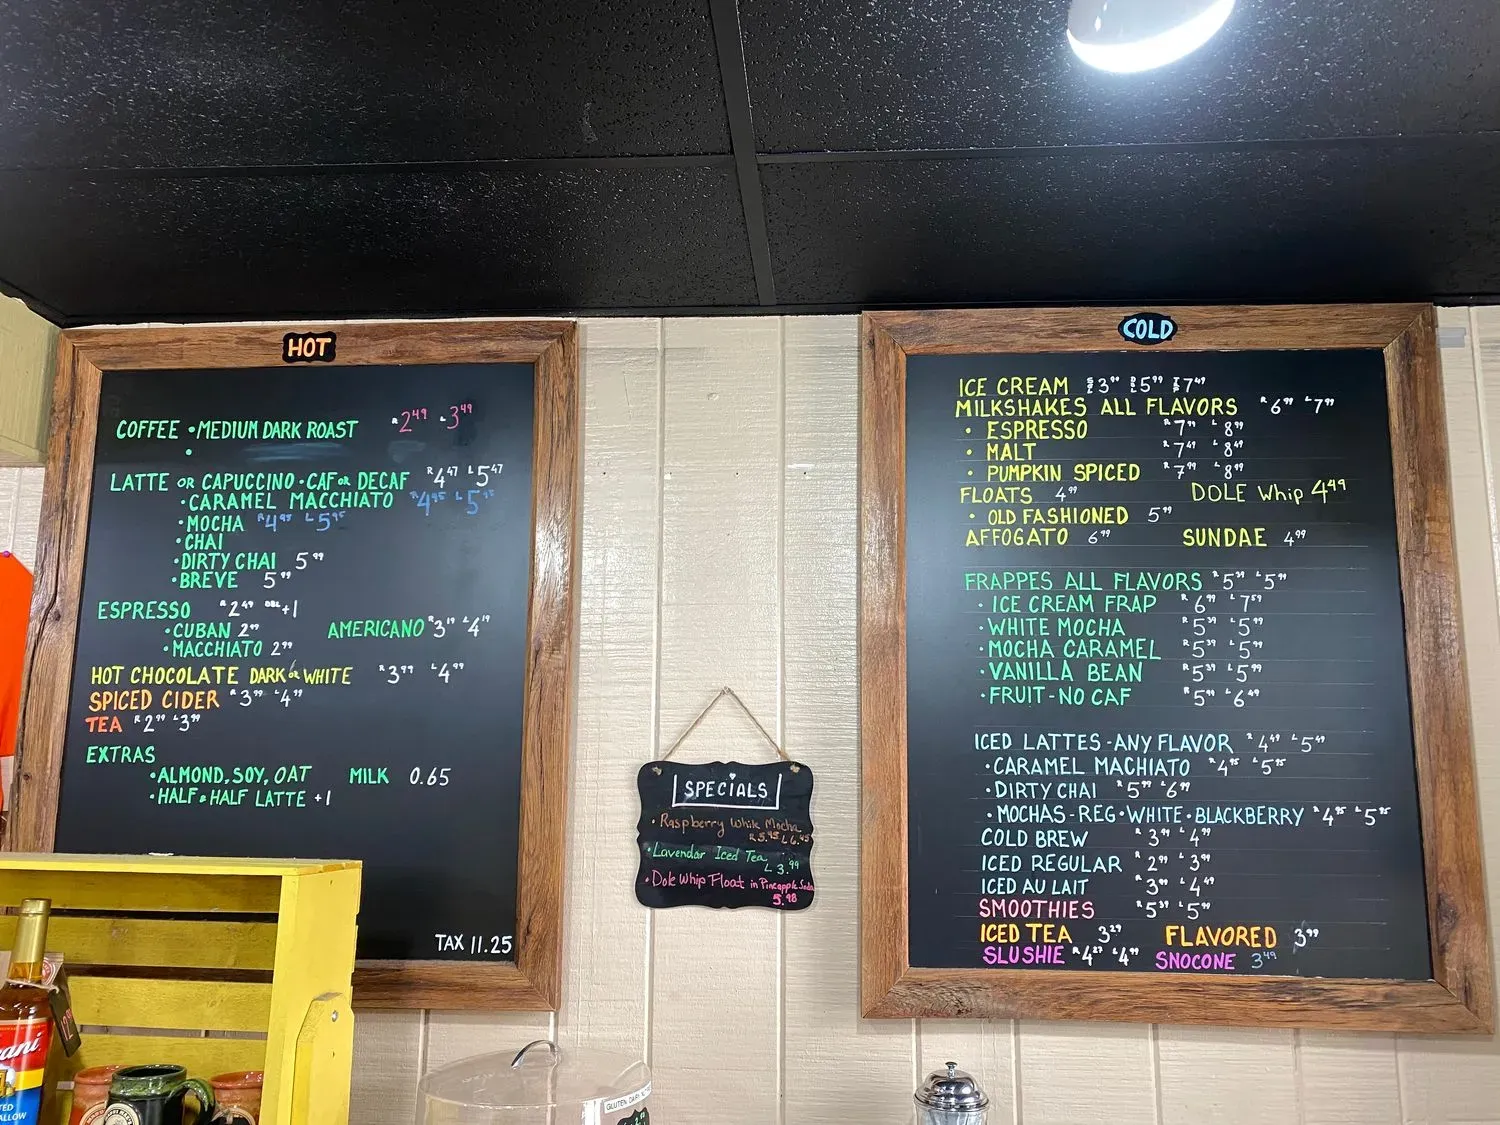 HOT
COFFEE • MEDIUM DARK ROAST R 2.49 L 3.49
•
LATTE OR CAPUCCINO • CAF OR DECAF R 4.47 L 5.47
• CARAMEL MACCHIATO R 4.95 L 5.95
• MOCHA R 4.95 L 5.95
• CHAI
• DIRTY CHAI 5.99
• BREVE 5.99
ESPRESSO R 2.49 DBL +1
• CUBAN 2.99 AMERICANO R 3.19 L 4.19
• MACCHIATO 2.99
HOT CHOCOLATE DARK OR WHITE R 3.99 L 4.99
SPICED CIDER R 3.99 L 4.99
TEA R 2.99 L 3.99
EXTRAS
• ALMOND, SOY, OAT MILK 0.65
• HALF & HALF LATTE +1
TAX 11.25
SPECIALS
• Raspberry White Mocha
R 5.95 L 6.45
• Lavendar Iced Tea
L 3.99
• Dole Whip Float in Pineapple Soda
5.98
COLD
ICE CREAM 3.99 5.99 7.49
MILKSHAKES ALL FLAVORS R 6.99 L 7.99
• ESPRESSO R 7.99 L 8.99
• MALT R 7.49 L 8.49
• PUMPKIN SPICED R 7.99 L 8.99
FLOATS 4.99 DOLE Whip 4.49
• OLD FASHIONED 5.99
AFFOGATO 6.99 SUNDAE 4.99
FRAPPES ALL FLAVORS R 5.39 L 5.99
• ICE CREAM FRAP R 6.99 L 7.59
• WHITE MOCHA R 5.39 L 5.99
• MOCHA CARAMEL R 5.39 L 5.99
• VANILLA BEAN R 5.39 L 5.99
• FRUIT - NO CAF R 5.99 L 6.49
ICED LATTES - ANY FLAVOR R 4.49 L 5.49
• CARAMEL MACHIATO R 4.95 L 5.95
• DIRTY CHAI R 5.99 L 6.99
• MOCHAS - REG • WHITE • BLACKBERRY R 4.95 L 5.95
COLD BREW R 3.99 L 4.99
ICED REGULAR R 2.99 L 3.99
ICED AU LAIT R 3.99 L 4.49
SMOOTHIES R 5.39 L 5.99
ICED TEA 3.29 FLAVORED 3.99
SLUSHIE R 4.27 L 4.99 SNOCONE 3.49
ani
GLUTEN